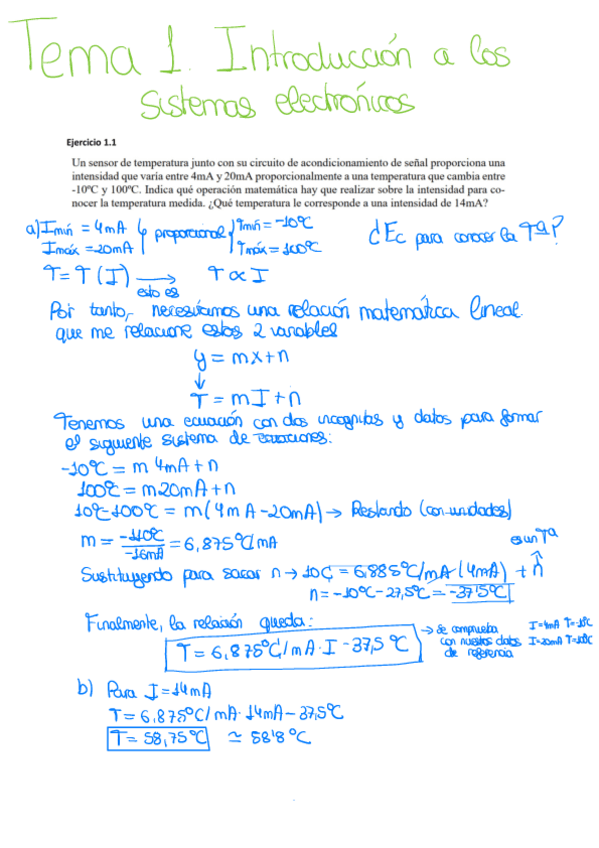 Tema 1. Introducción a los
sistemas electrónicos
Ejercicio 1.1
Un sensor de temperatura junto con su circuito de acondicionamiento de señal proporciona una
intensidad que varía entre 4mA y 20mA proporcionalmente a una temperatura que cambia entre
-10ºC y 100ºC. Indica qué operación matemática hay que realizar sobre la intensidad para co-
nocer la temperatura medida. ¿Qué temperatura le corresponde a una intensidad de 14mA?
a) Imín = 4mA proporcional Tmín = -10ºC ¿Ec para conocer la Tª?
Imáx = 20mA Tmáx = 100ºC
T = T(I) → T ∝ I
esto es
Por tanto, necesitamos una relación matemática lineal
que me relacione estas 2 variables
y = mx+n
↓
T = mI+n
Tenemos una ecuación con dos incógnitas y datos para formar
el siguiente sistema de ecuaciones:
-10ºC = m 4mA + n
100ºC = m20mA + n
10ºC-100ºC = m(4mA-20mA) → Restando (con unidades)
m = -110ºC / -16mA = 6,875ºC/mA
es un Tª
Sustituyendo para sacar n → 10C = 6,885ºC/mA(4mA) + n
n = -10ºC - 27,5ºC = -37'5ºC
Finalmente, la relación queda:
T = 6,875ºC/mA · I - 37,5ºC
→ se comprueba I=4mA T=-10ºC
con nuestros datos I=20mA T=100ºC
de referencia
b) Para I = 14mA
T = 6,875ºC/mA · 14mA - 37,5ºC
T = 58,75ºC ≃ 58'8ºC